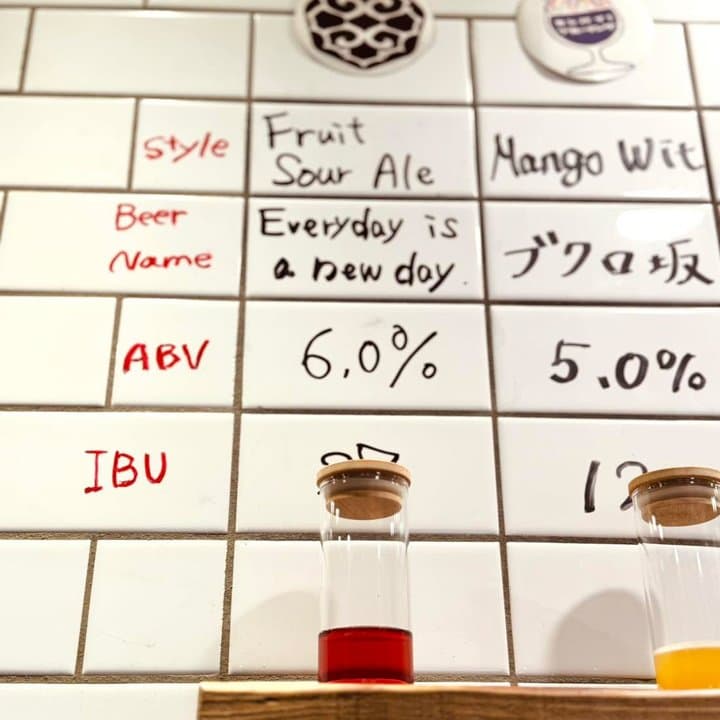 Style
Fruit
Sour Ale
Mango Wit
Beer
Name
Everyday is
a new day.
ブクロ坂
ABV
6.0%
5.0%
IBU